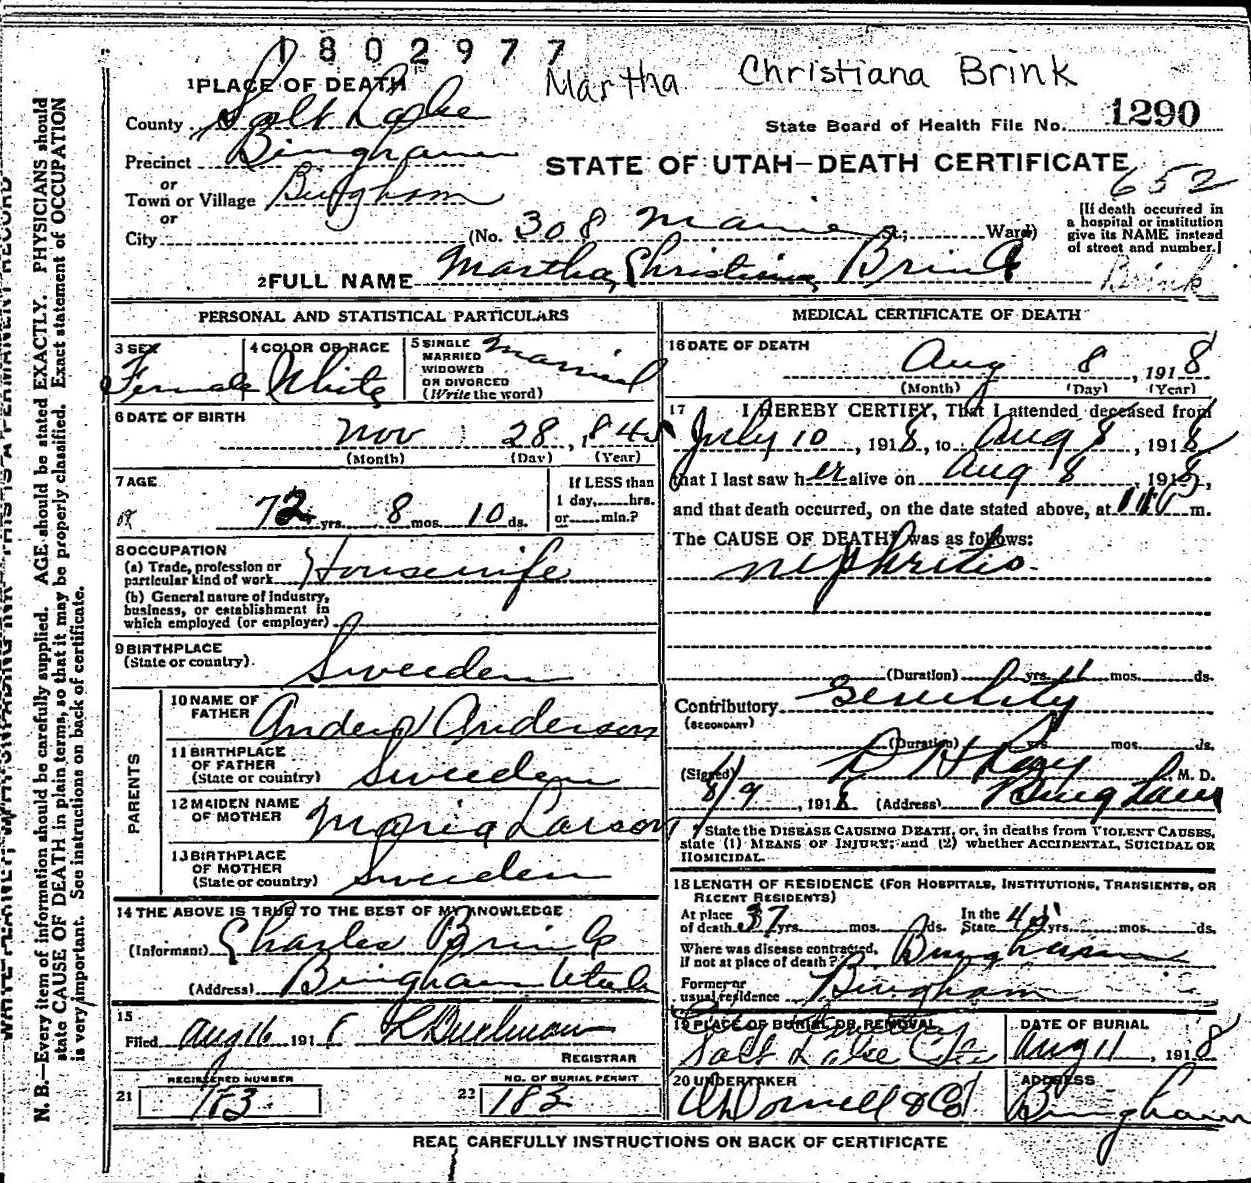 1802977
Martha Christiana Brink
1 PLACE OF DEATH
County Salt Lake
State Board of Health File No. 1290
Precinct Bingham
STATE OF UTAH—DEATH CERTIFICATE
652
or
Town or Village Bingham
or
City (No. 308 Main St.; Ward)
[If death occurred in
a hospital or institution
give its NAME instead
of street and number.]
2 FULL NAME Martha Christina Brink
Brink
PERSONAL AND STATISTICAL PARTICULARS
3 SEX
Female
4 COLOR OR RACE
White
5 SINGLE
MARRIED
WIDOWED
OR DIVORCED
(Write the word)
Married
6 DATE OF BIRTH
Nov 28, 1845
(Month) (Day) (Year)
7 AGE
72 yrs. 8 mos. 10 ds.
If LESS than
1 day, hrs.
or min.?
8 OCCUPATION
(a) Trade, profession or
particular kind of work Housewife
(b) General nature of industry,
business, or establishment in
which employed (or employer)
9 BIRTHPLACE
(State or country) Sweeden
PARENTS
10 NAME OF
FATHER Anderson
11 BIRTHPLACE
OF FATHER
(State or country) Sweeden
12 MAIDEN NAME
OF MOTHER Maria Larson
13 BIRTHPLACE
OF MOTHER
(State or country) Sweeden
14 THE ABOVE IS TRUE TO THE BEST OF MY KNOWLEDGE
(Informant) Charles Brink
(Address) Bingham Utah
15
Filed Aug 16 1918
REGISTRAR
21 REGISTERED NUMBER
183
22 NO. OF BURIAL PERMIT
183
MEDICAL CERTIFICATE OF DEATH
16 DATE OF DEATH
Aug 8, 1918
(Month) (Day) (Year)
17 I HEREBY CERTIFY, That I attended deceased from
July 10, 1918, to Aug 8, 1918
that I last saw her alive on Aug 8 1918,
and that death occurred, on the date stated above, at m.
The CAUSE OF DEATH* was as follows:
Nephritis
(Duration) yrs. mos. ds.
Contributory Senility
(SECONDARY)
(Duration) yrs. mos. ds.
(Signed) M. D.
8/9, 1918 (Address) Bingham
* State the DISEASE CAUSING DEATH, or, in deaths from VIOLENT CAUSES,
state (1) MEANS OF INJURY; and (2) whether ACCIDENTAL, SUICIDAL OR
HOMICIDAL.
18 LENGTH OF RESIDENCE (FOR HOSPITALS, INSTITUTIONS, TRANSIENTS, OR
RECENT RESIDENTS)
At place
of death 37 yrs. mos. ds. In the
State yrs. mos. ds.
Where was disease contracted,
if not at place of death? Bingham
Former or
usual residence Bingham
19 PLACE OF BURIAL OR REMOVAL
Salt Lake
DATE OF BURIAL
Aug 11, 1918
20 UNDERTAKER
O'Donnell & Co
ADDRESS
Bingham
READ CAREFULLY INSTRUCTIONS ON BACK OF CERTIFICATE
N. B.—Every item of information should be carefully supplied. AGE should be stated EXACTLY. PHYSICIANS should
state CAUSE OF DEATH in plain terms, so that it may be properly classified. Exact statement of OCCUPATION
is very important. See instructions on back of certificate.